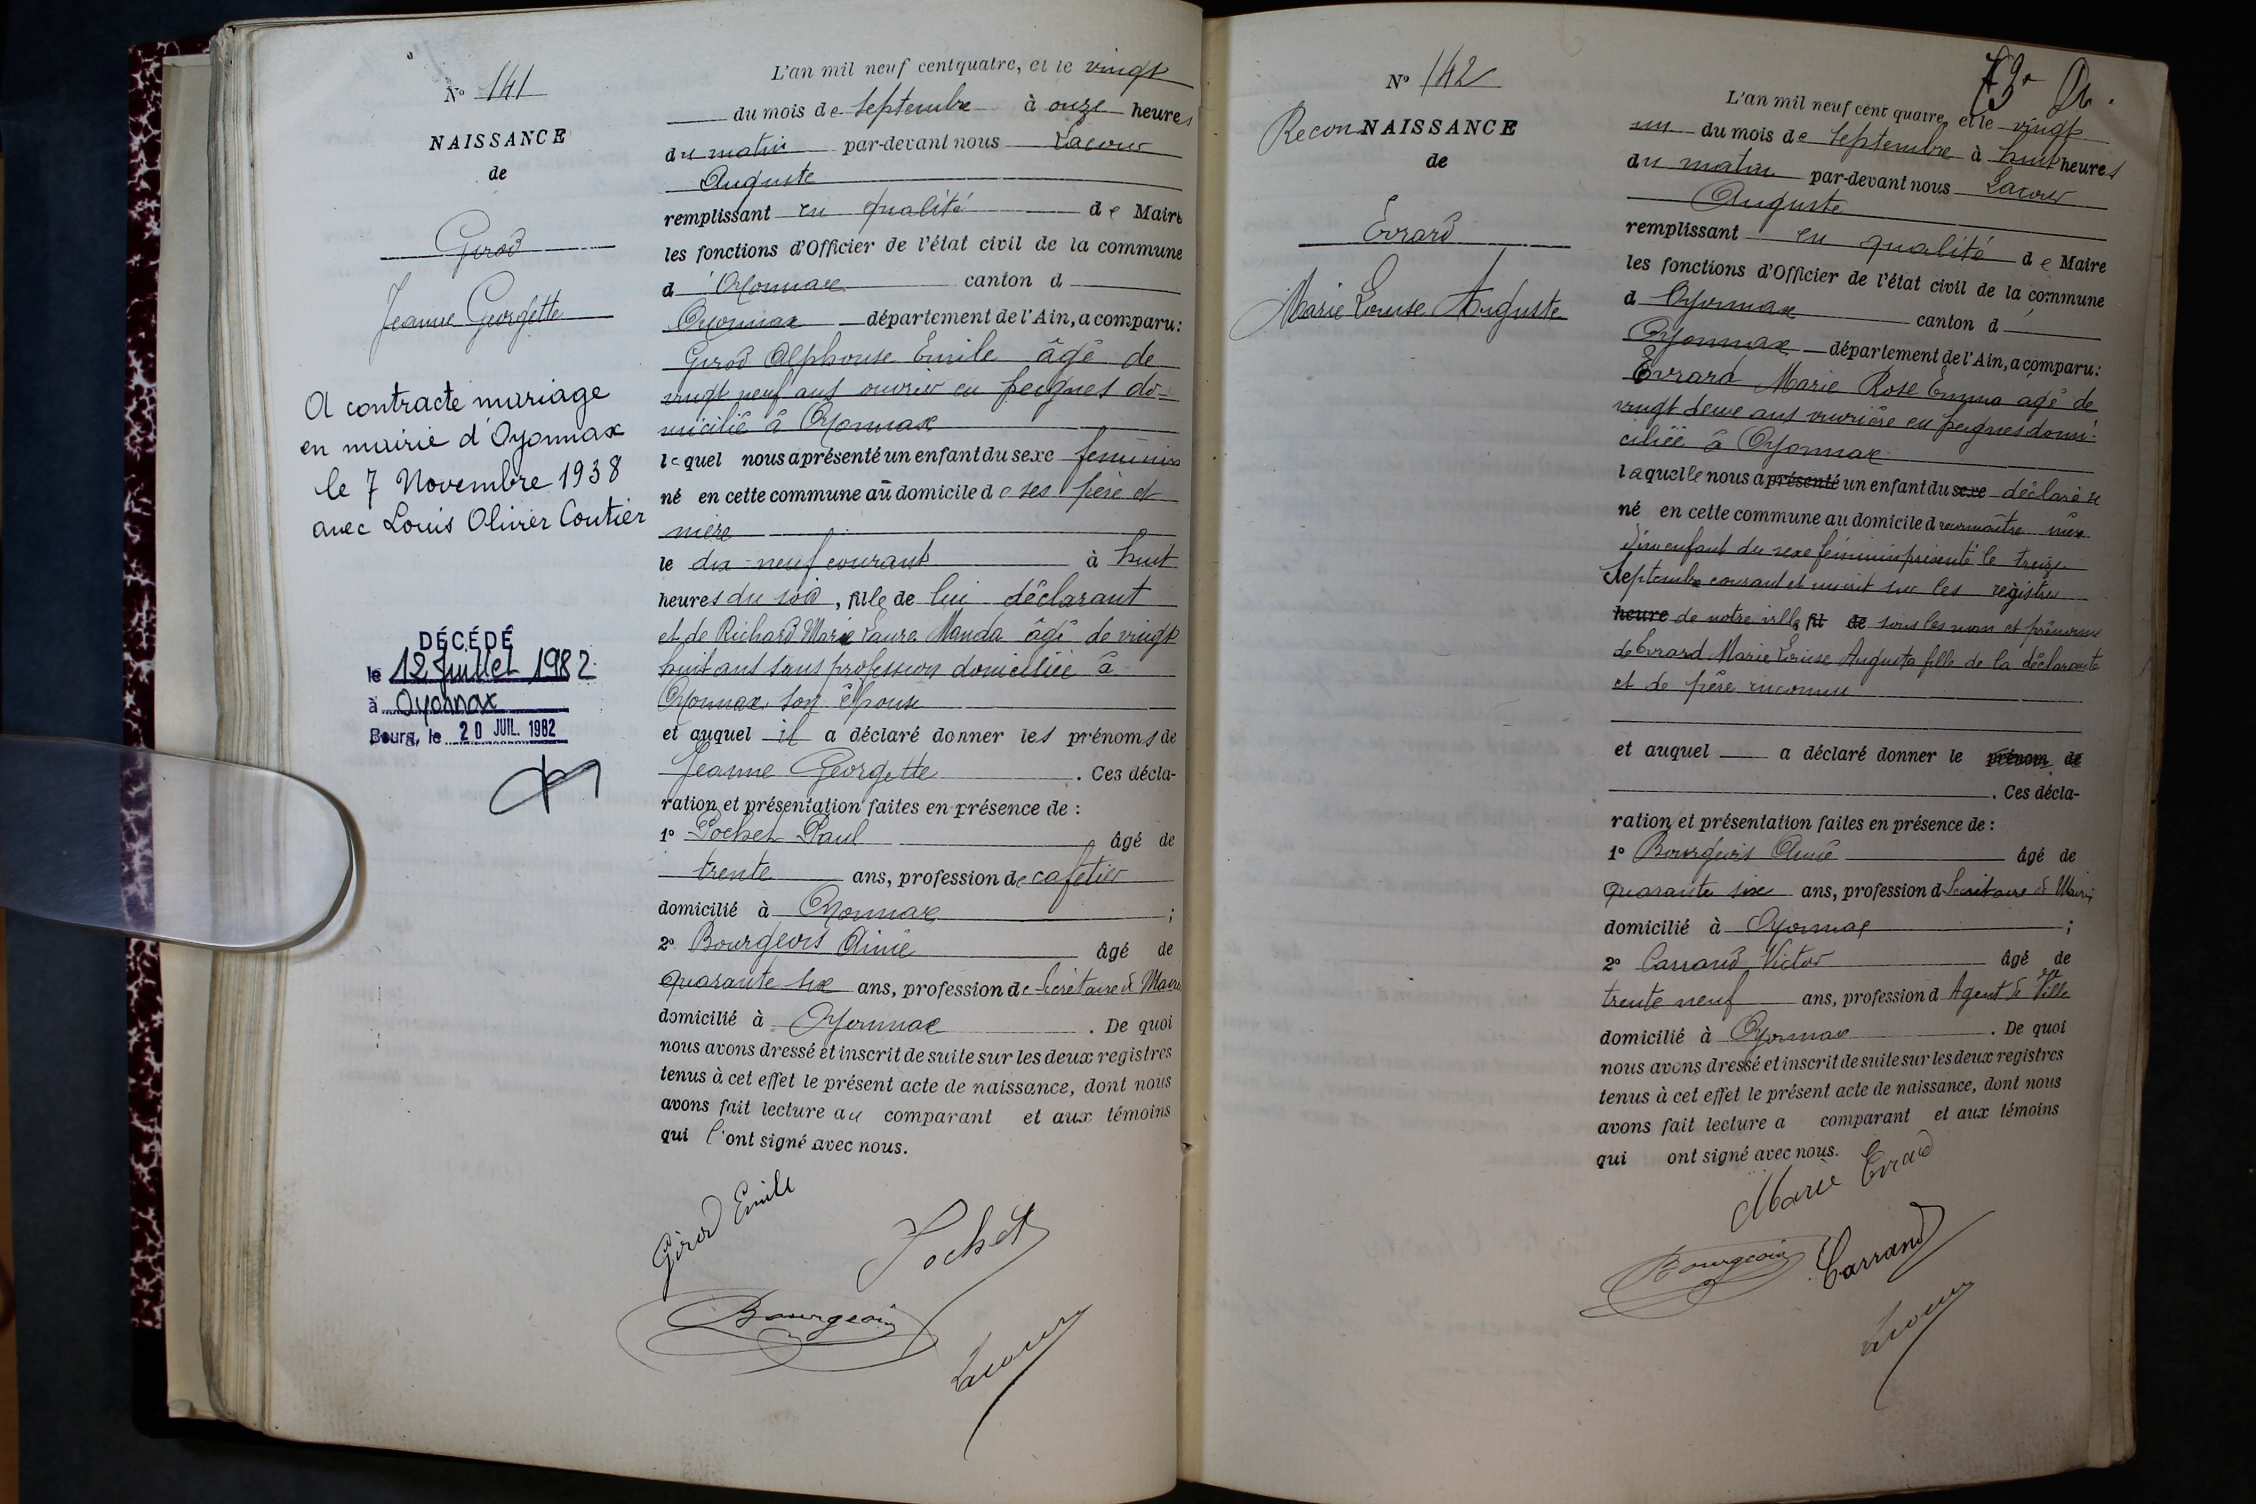 N° 141
NAISSANCE
de
Girod
Jeanne Georgette
A contracté mariage
en mairie d'Oyonnax
le 7 Novembre 1938
avec Louis Olivier Coutier
DÉCÉDÉ
le 12 Juillet 1982
à Oyonnax
Bourg, le 20 JUIL. 1982
L'an mil neuf cent quatre, et le vingt
du mois de Septembre à onze heures
du matin par-devant nous Lacour
Auguste
remplissant en qualité de Maire
les fonctions d'Officier de l'état civil de la commune
d'Oyonnax canton d
Oyonnax département de l'Ain, a comparu:
Girod Alphonse Emile âgé de
vingt neuf ans ouvrier en peignes do-
micilié à Oyonnax
lequel nous a présenté un enfant du sexe féminin
né en cette commune au domicile de ses père et
mère
le dix-neuf courant à huit
heures du soir, fille de lui déclarant
et de Richard Marie Laure Wanda âgé de vingt
huit ans sans profession domiciliée à
Oyonnax, son épouse
et auquel il a déclaré donner les prénoms de
Jeanne Georgette. Ces décla-
ration et présentation faites en présence de :
1° Pochet Paul âgé de
trente ans, profession de cafetier
domicilié à Oyonnax ;
2° Bourgeois Aimé âgé de
quarante six ans, profession de Secrétaire de Mairie
domicilié à Oyonnax. De quoi
nous avons dressé et inscrit de suite sur les deux registres
tenus à cet effet le présent acte de naissance, dont nous
avons fait lecture au comparant et aux témoins
qui l'ont signé avec nous.
Girod Emile
Pochet
Bourgeois
Lacour
73e
N° 142
Recon NAISSANCE
de
Evrard
Marie Louise Auguste
L'an mil neuf cent quatre, et le vingt
un du mois de Septembre à huit heures
du matin par-devant nous Lacour
Auguste
remplissant en qualité de Maire
les fonctions d'Officier de l'état civil de la commune
d Oyonnax canton d
Oyonnax département de l'Ain, a comparu:
Evrard Marie Rose Emma âgé de
vingt deux ans ouvrière en peignes domi-
ciliée à Oyonnax
laquelle nous a présenté un enfant du sexe déclaré se
né en cette commune au domicile d reconnaître mère
d'un enfant du sexe féminin présenté le treize
Septembre courant et inscrit sur les registres
heure de notre ville fil de sous les nom et prénoms
de Evrard Marie Louise Augusta fille de la déclarante
et de père inconnu
et auquel a déclaré donner le prénom de
. Ces décla-
ration et présentation faites en présence de :
1° Bourgeois Aimé âgé de
quarante six ans, profession d Secrétaire de Mairie
domicilié à Oyonnax ;
2° Carrand Victor âgé de
trente neuf ans, profession d Agent de Ville
domicilié à Oyonnax. De quoi
nous avons dressé et inscrit de suite sur les deux registres
tenus à cet effet le présent acte de naissance, dont nous
avons fait lecture a comparant et aux témoins
qui ont signé avec nous.
Marie Evrard
Bourgeois
Carrand
Lacour